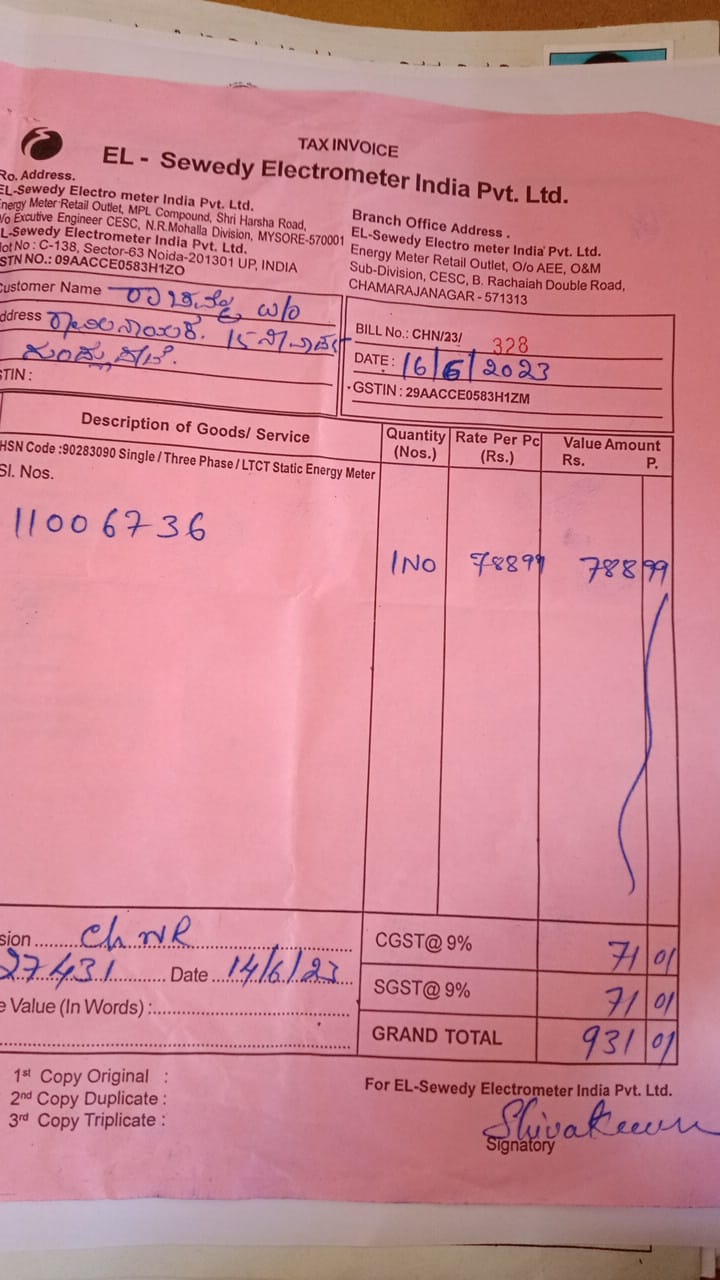 TAX INVOICE
EL - Sewedy Electrometer India Pvt. Ltd.
Ro. Address.
EL-Sewedy Electro meter India Pvt. Ltd.
Energy Meter Retail Outlet, MPL Compound, Shri Harsha Road,
/o Excutive Engineer CESC, N.R.Mohalla Division, MYSORE-570001
L-Sewedy Electrometer India Pvt. Ltd.
lot No : C-138, Sector-63 Noida-201301 UP, INDIA
STN NO.: 09AACCE0583H1ZO
Branch Office Address .
EL-Sewedy Electro meter India Pvt. Ltd.
Energy Meter Retail Outlet, O/o AEE, O&M
Sub-Division, CESC, B. Rachaiah Double Road,
CHAMARAJANAGAR - 571313
ustomer Name w/o
ddress
STIN :
BILL No.: CHN/23/ 328
DATE : 16/6/2023
GSTIN : 29AACCE0583H1ZM
Description of Goods/ Service Quantity (Nos.) Rate Per Pc (Rs.) Value Amount Rs. P.
HSN Code :90283090 Single / Three Phase / LTCT Static Energy Meter
Sl. Nos.
11006736
1NO 78899 788 99
sion ChNR CGST@ 9% 71 01
27431 Date 14/6/23 SGST@ 9% 71 01
e Value (In Words) :
GRAND TOTAL 931 01
1st Copy Original :
2nd Copy Duplicate :
3rd Copy Triplicate :
For EL-Sewedy Electrometer India Pvt. Ltd.
Signatory